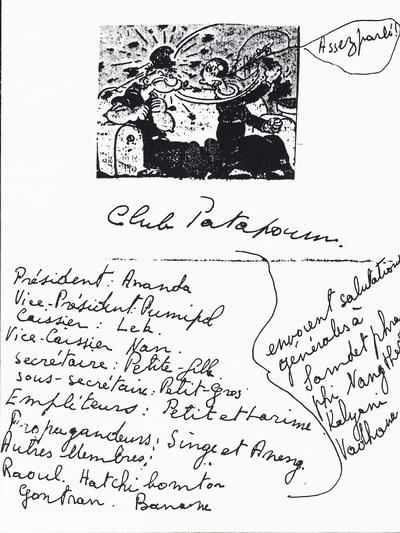 Assez parlé!
Club Patapoum.
Président: Ananda
Vice-Président: Pumipol
Caissier: Lek.
Vice-Caissier Nan
secrétaire: Petite-fille
sous-secrétaire: Petit-Gros
Empléteurs: Petit et Larime
Propagandeurs: Singe et Aneng.
Autres Membres:
Raoul. Hatchi bomton
Gontran. Banane
envoient salutations
générales à
Somdet phra
phi Nang
Kalyani
Vadhana